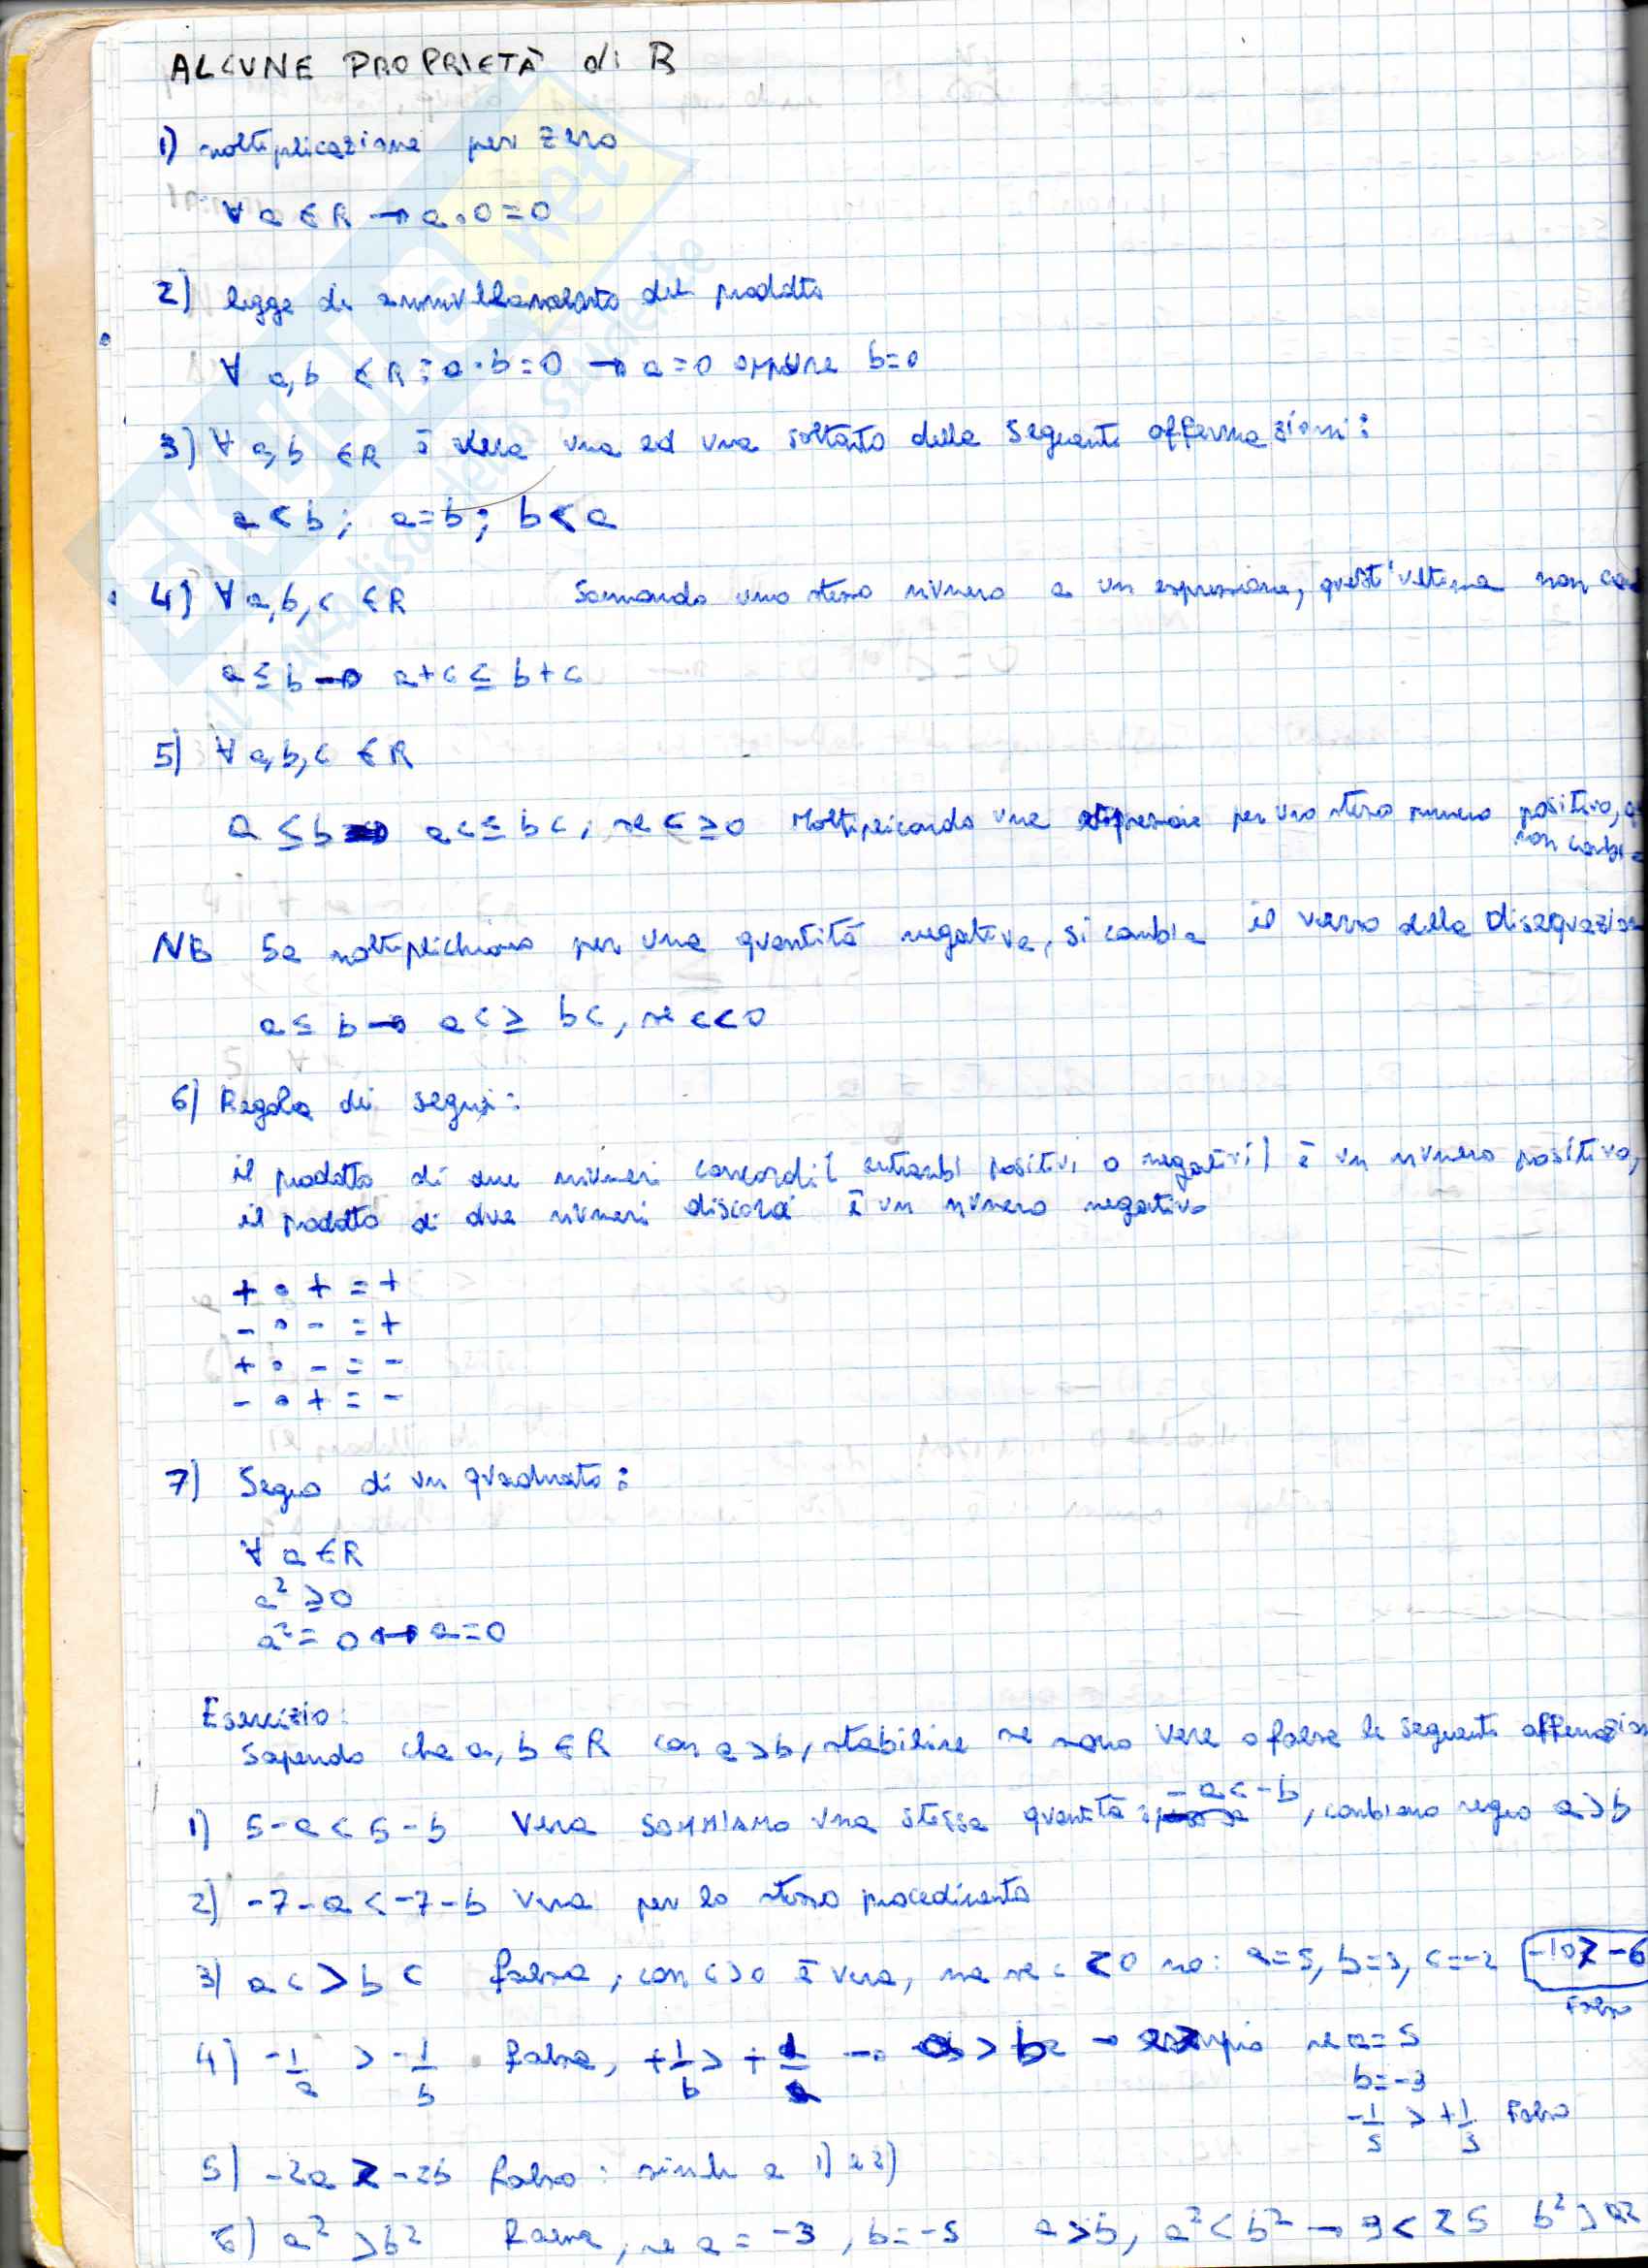 ALCUNE PROPRIETÀ di R
1) moltiplicazione per zero
∀ a ∈ R → a·0=0
2) legge di annullamento del prodotto
∀ a,b ∈ R : a·b=0 → a=0 oppure b=0
3) ∀ a,b ∈ R è vera una ed una soltanto delle seguenti affermazioni:
a<b; a=b; b<a
4) ∀ a,b,c ∈ R Sommando uno stesso numero a un espressione, quest'ultima non
a≤b → a+c ≤ b+c
5) ∀ a,b,c ∈ R
a≤b → ac≤bc, se c≥0 Moltiplicando una espressione per uno stesso numero positivo,
non cambia
NB Se moltiplichiamo per una quantità negativa, si cambia il verso della Disequazione
a≤b → ac≥bc, se c<0
6) Regola dei segni:
il prodotto di due numeri concordi (entrambi positivi o negativi) è un numero positivo,
il prodotto di due numeri discordi è un numero negativo
+ · + = +
- · - = +
+ · - = -
- · + = -
7) Segno di un quadrato:
∀ a ∈ R
a² ≥ 0
a² = 0 ↔ a=0
Esercizio:
Sapendo che a, b ∈ R con a>b, stabilire se sono vere o false le seguenti affermazioni
1) 5-a<5-b Vera SOMMIAMO una stessa quantità: -a<-b, cambiamo segno a>b
2) -7-a<-7-b Vera per lo stesso procedimento
3) ac>bc falsa, con c>0 è vera, ma se c<0 no: a=5, b=3, c=-2 -10>-6
Falso
4) -1/a > -1/b falsa, +1/b > +1/a → a>b → esempio se a=5
b=-3
-1/5 > +1/3 Falso
5) -2a > -2b falso: simile a 1) e 2)
6) a²>b² Falsa, se a=-3, b=-5 a>b, a²<b² → 9<25 b²>a²